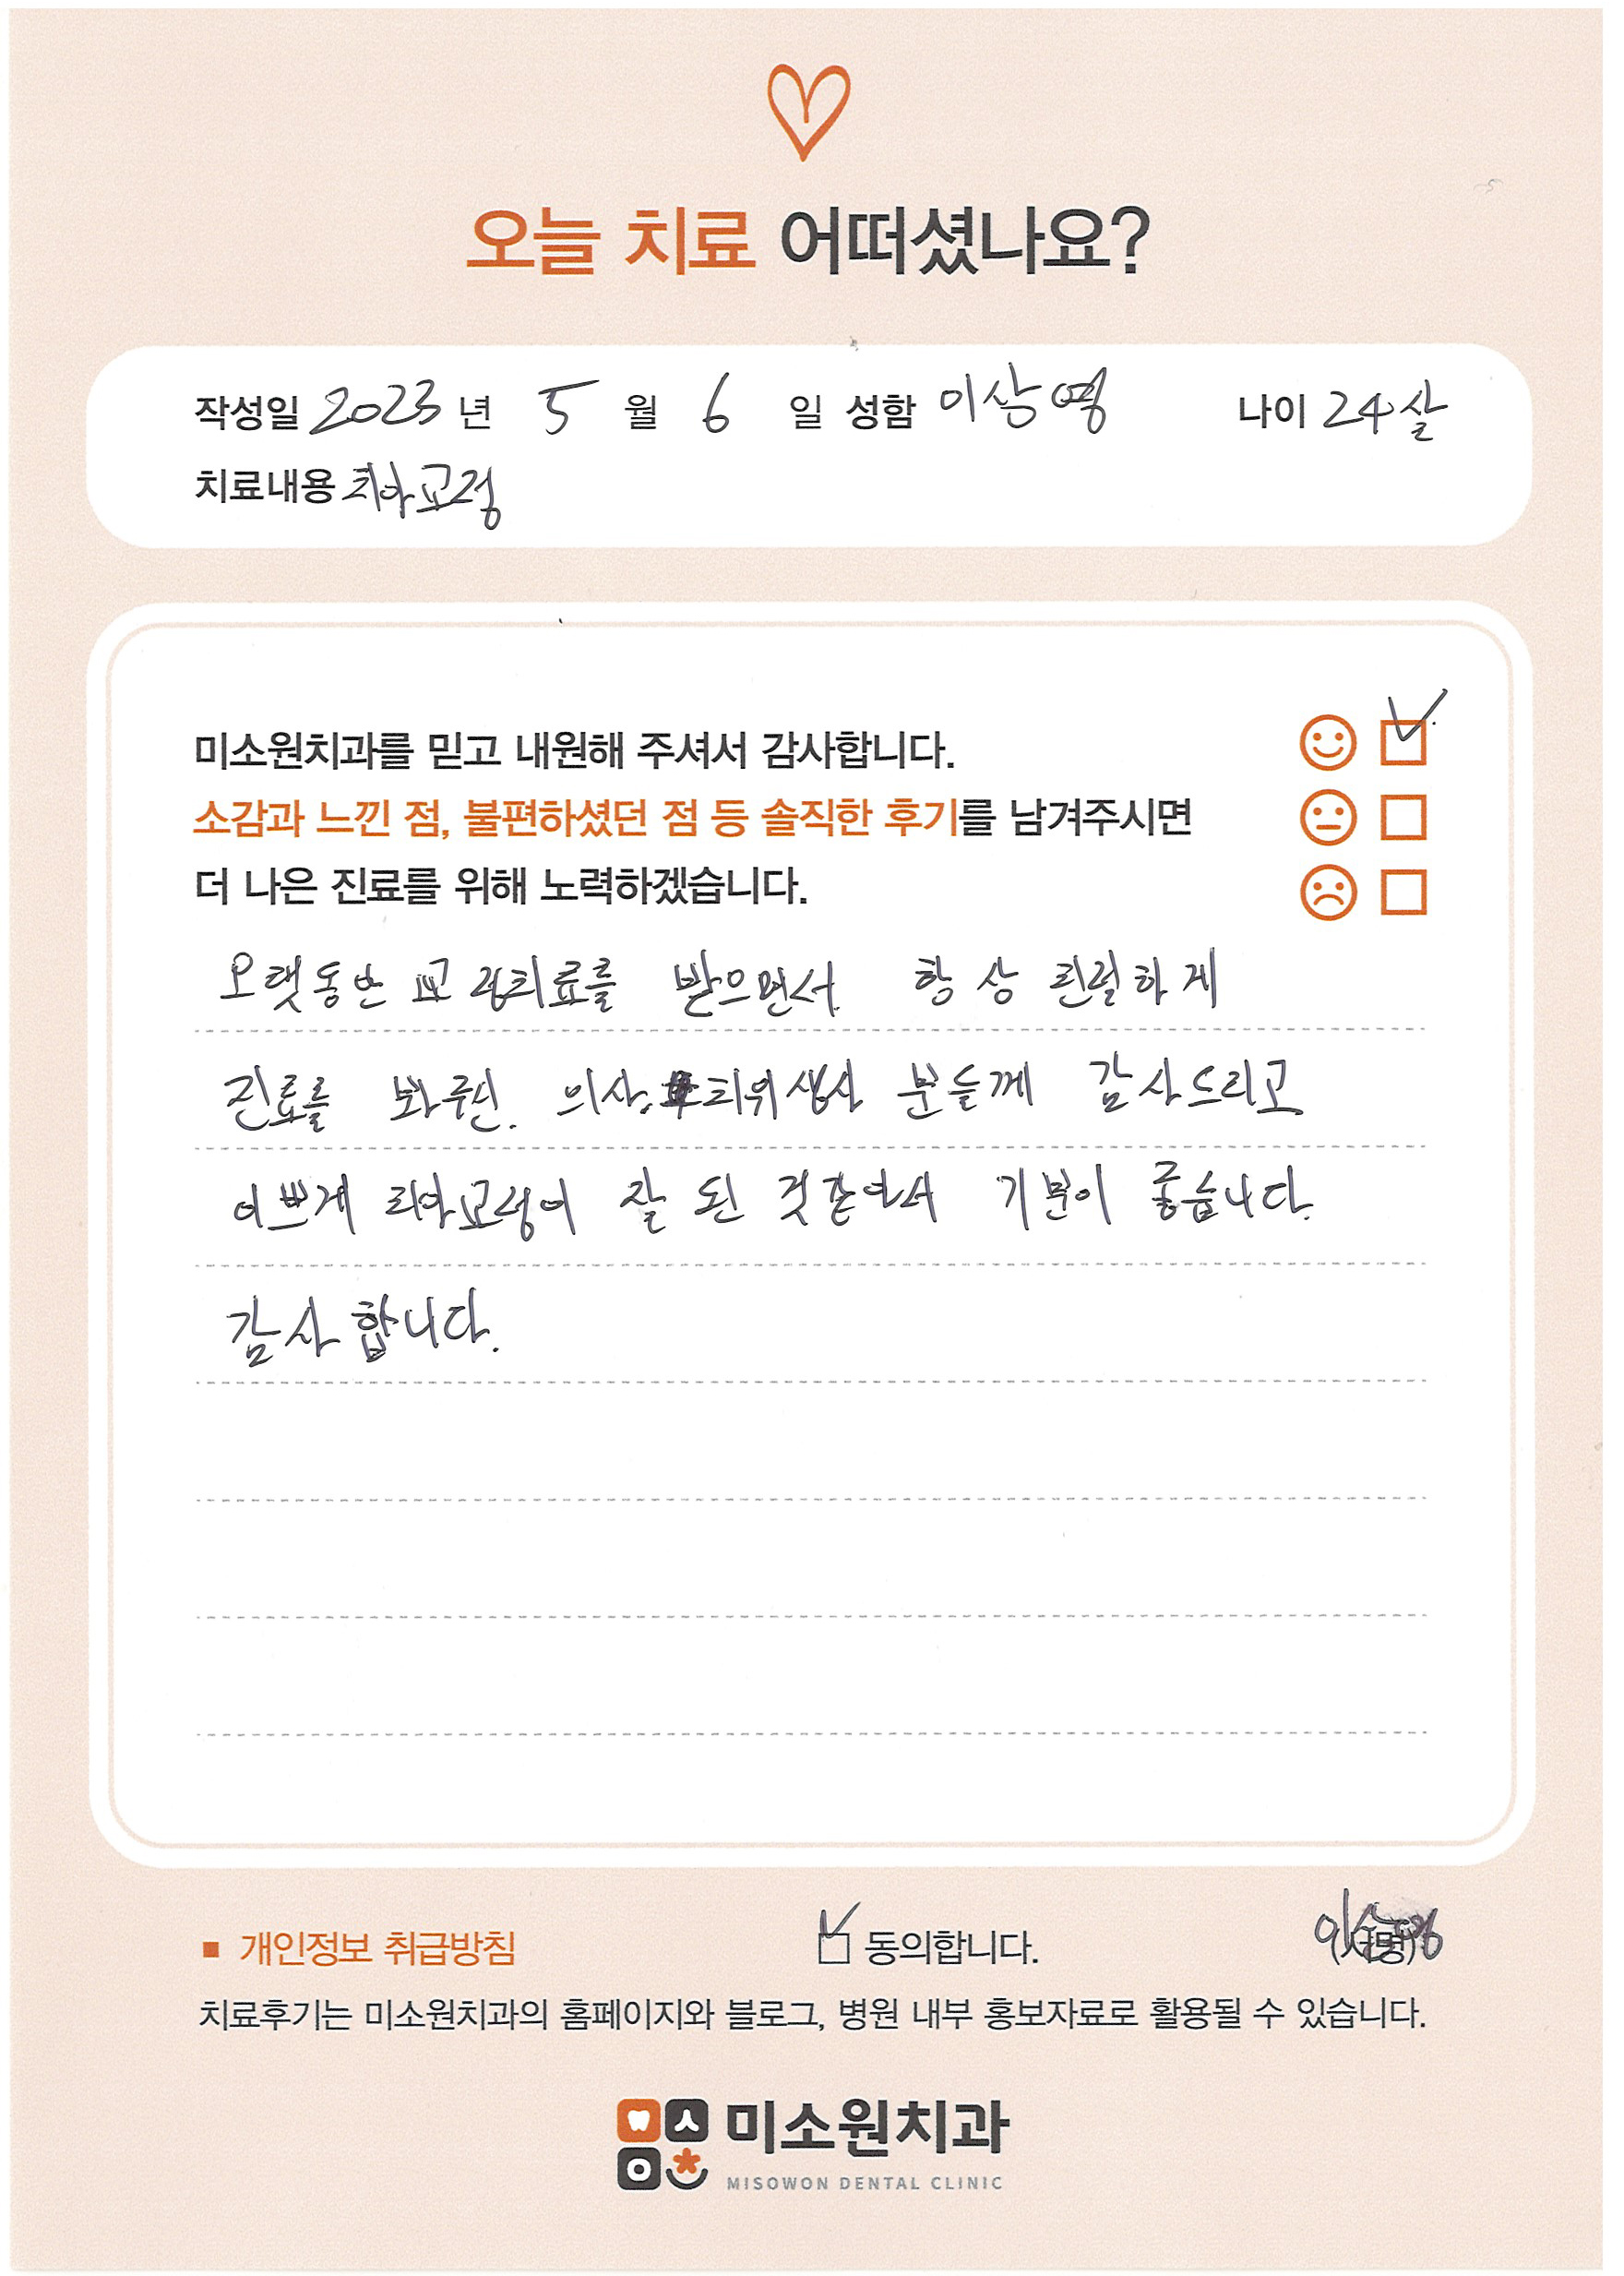 오늘 치료 어떠셨나요?
작성일 2023 년 5 월 6 일 성함 이상영 나이 24살
치료내용 치아교정
미소원치과를 믿고 내원해 주셔서 감사합니다.
소감과 느낀 점, 불편하셨던 점 등 솔직한 후기를 남겨주시면
더 나은 진료를 위해 노력하겠습니다.
오랫동안 교정치료를 받으면서 항상 친절하게
진료를 봐주신. 의사, 치위생사 분들께 감사드리고
이쁘게 치아교정이 잘 된 것같아서 기분이 좋습니다.
감사합니다.
■ 개인정보 취급방침 동의합니다. (서명) 이상영
치료후기는 미소원치과의 홈페이지와 블로그, 병원 내부 홍보자료로 활용될 수 있습니다.
미소원치과
MISOWON DENTAL CLINIC